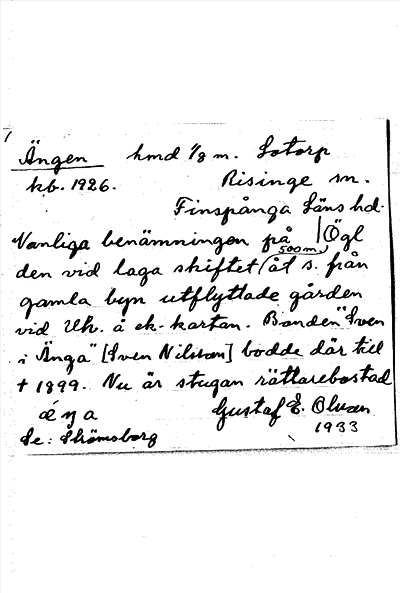 Ängen hmd 1/8 m. Sotorp
kb. 1926. Risinge sn.
Finspånga Läns hd.
Vanliga benämningen på | Ögl
den vid laga skiftet (500 m) åt s. från
gamla byn utflyttade gården
vid Uh. å ek-kartan. Bonden "Sven
i Änga" [Sven Nilsson] bodde där till
† 1899. Nu är stugan rättarebostad
Gustaf E. Olsson
1933
Se: Strömsborg